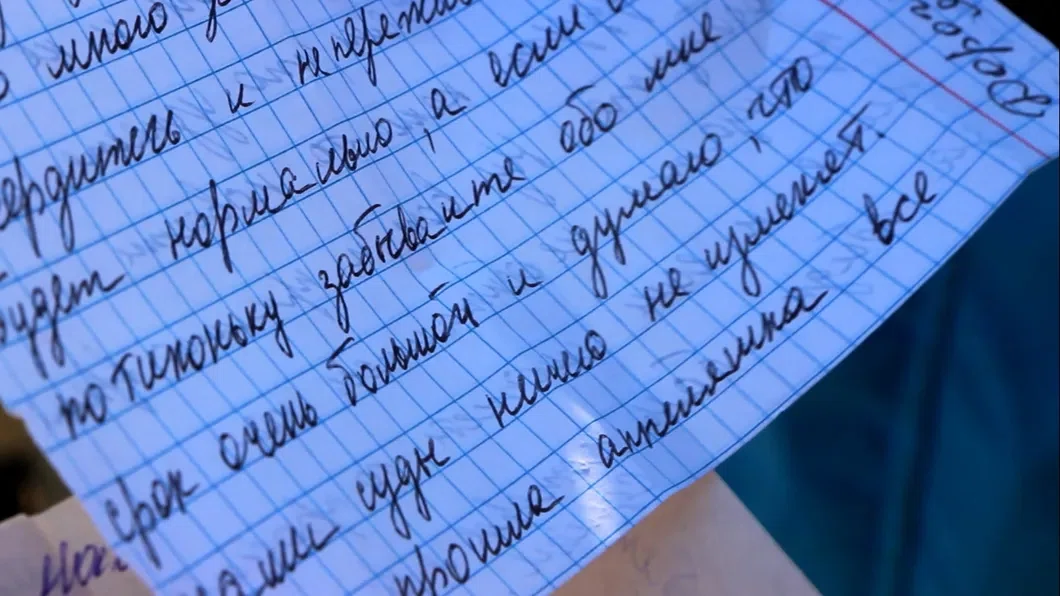 много
сердитесь и не пережив
будет нормально, а если
потихоньку забывайте обо мне
срок очень большой и думаю, что
наши суды ничего не изменят.
прошла аппеляшка все
Дорог